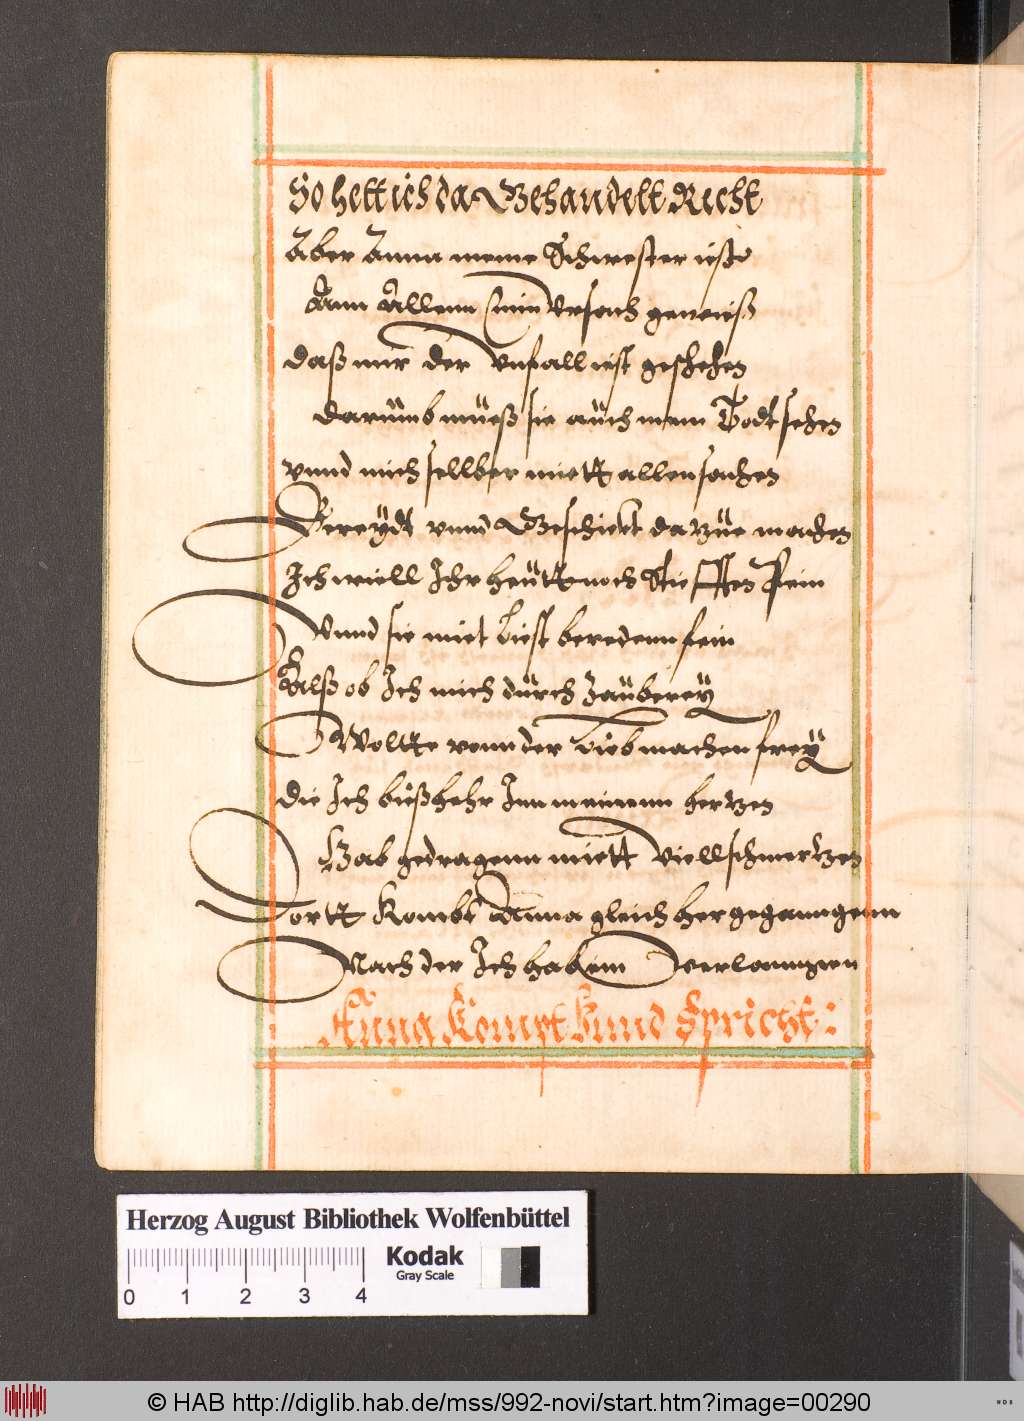 So hett ich da Gehandelt Recht
Aber Anna meine Schwester ieste
Ann Allenn Minn Vrsach gewieß
daß mir der Vnfall iest geschehen
darümb müeß sie aüch mein Todt sehen
vnnd mich sellber miett allen sachen
Bereÿdt vnnd Geschickt dazüe machen
Ich wiell Ihr heütt noch Stifften Pein
Vnnd sie miet Liest beredenn fein
Alß ob Ich mich dürch Zaübereÿ
Woltte vonn der Lieb machen freÿ
die Ich bießhehr Inn meinenn hertzen
Hab gedragenn miett Viell schmertzen
Dortt Kombt Anna gleich her geganngenn
Nach der Ich hab ein Verlanngen
Anna Kompt Vnnd Spricht:
Herzog August Bibliothek Wolfenbüttel
Kodak
Gray Scale
0 1 2 3 4
© HAB http://diglib.hab.de/mss/992-novi/start.htm?image=00290